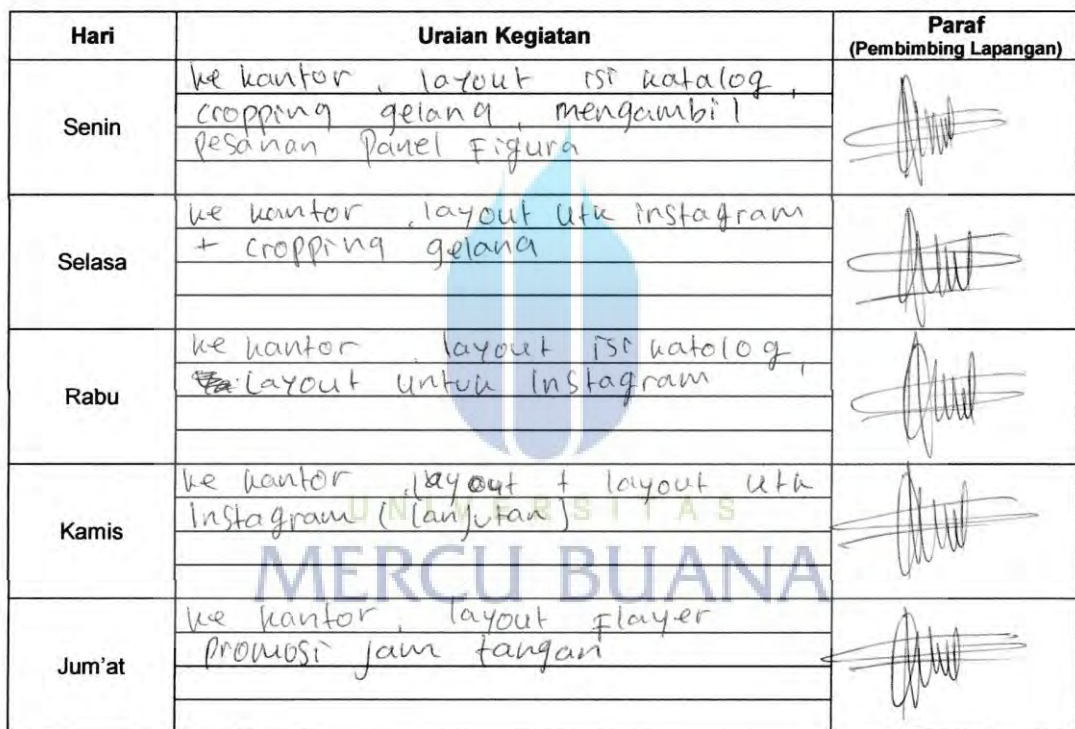 Hari Uraian Kegiatan Paraf
(Pembimbing Lapangan)
Senin
ke kantor, layout isi katalog,
cropping gelang, mengambil
pesanan Panel Figura
Selasa
ke kantor, layout utk instagram
+ cropping gelang
Rabu
ke kantor, layout isi katolog,
Layout untuk Instagram
Kamis
ke kantor, layout + layout utk
Instagram (lanjutan)
UNIVERSITAS
MERCU BUANA
Jum'at
ke kantor, layout Flayer
Promosi jam tangan